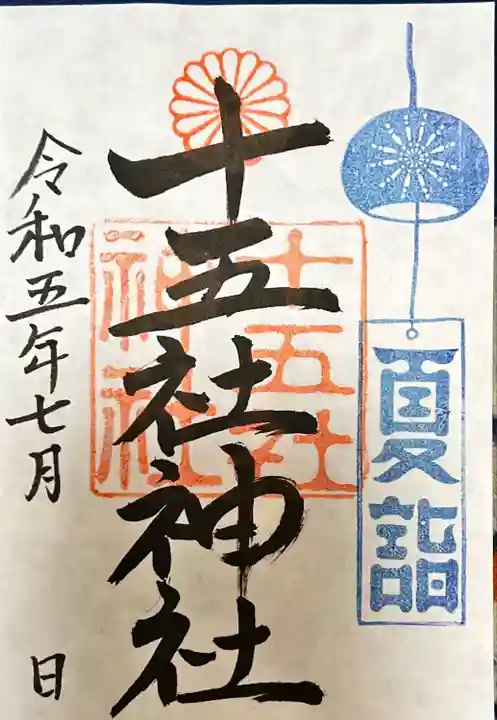 夏詣
十五社神社
十五社
神社
令和五年七月
日